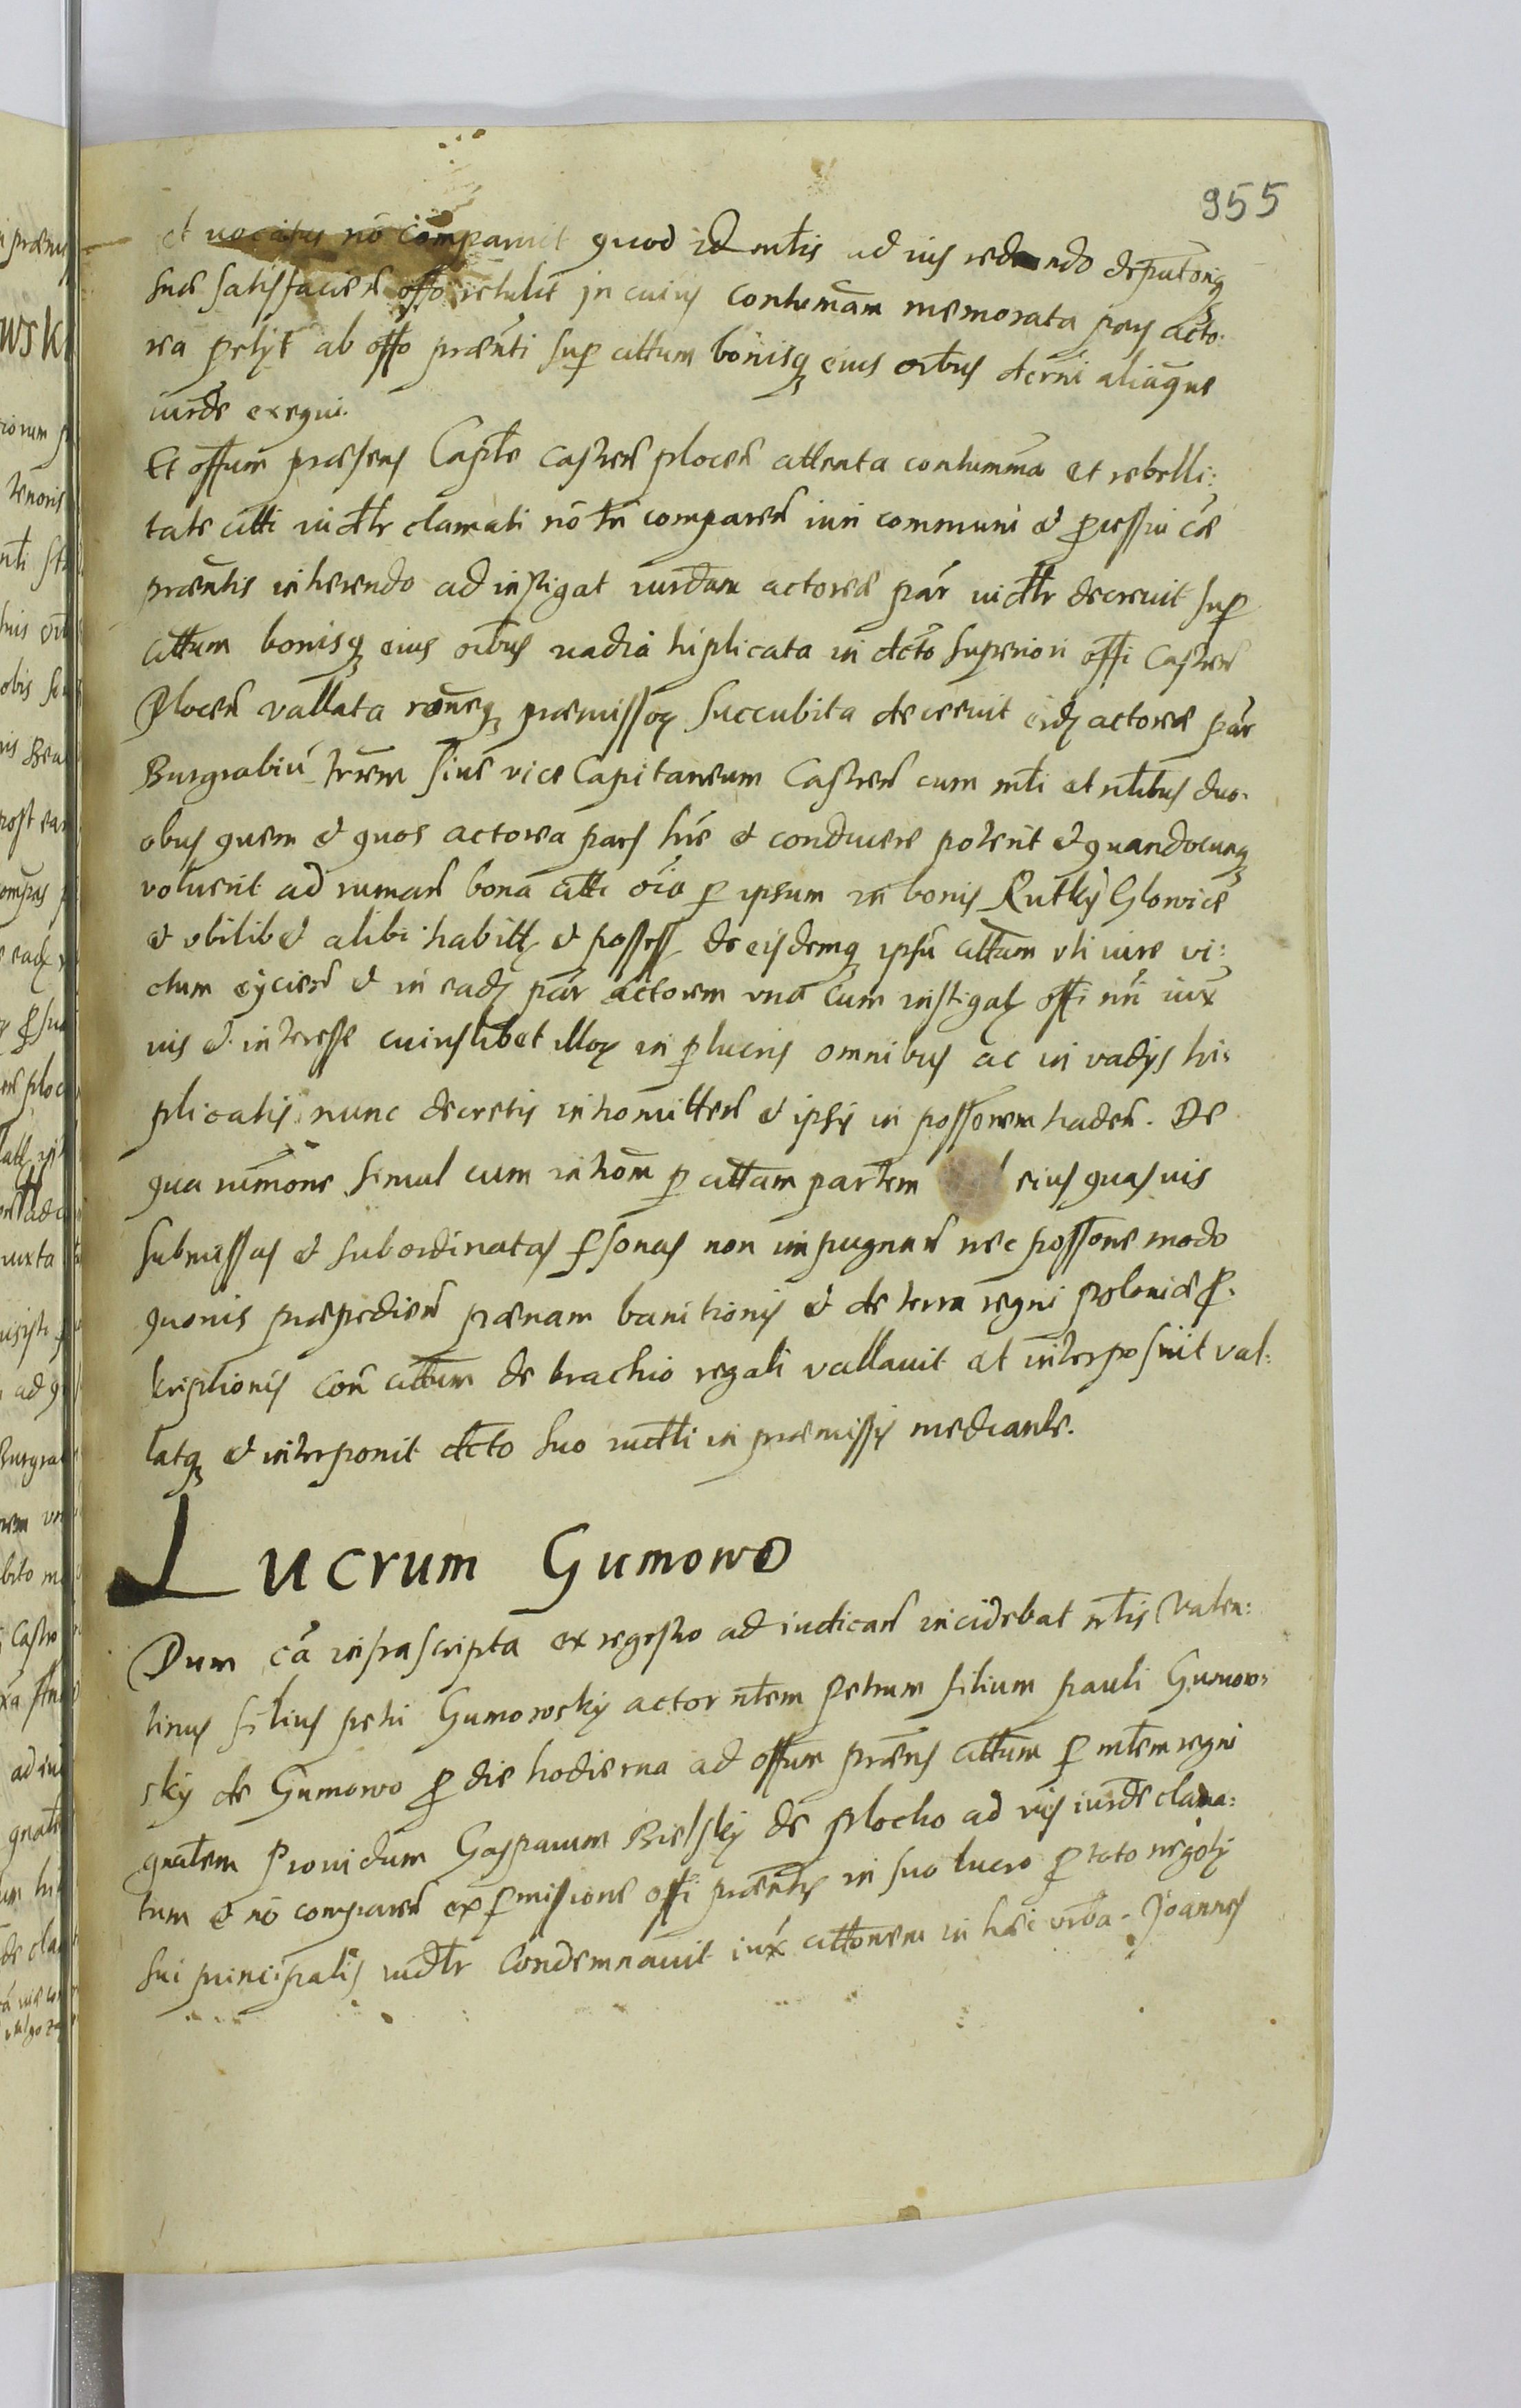 955
et vocatus nõ comparuit quod id mtis ad ius reddendo deputonis
suæ satisfacieñ offo retulit in cuius contumãm memorata pars acto:
rea petijt ab offo præñti sup cittum bonisq eius oĩbus decerni aliàque
iurde exequi.
Et offum præsens Caple castreñ ploceñ attenta contummã et rebelli:
tate citti iudtr clamati nõ tñ compareñ iuri communi et processui cæ
præntis inherendo ad instigat iurdam actoreæ par iudtr decrevit sup
cittum bonisq eius oĩbus vadia triplicata in dcto superiori offi Castreñ
Ploceñ vallata roneq præmissoz succubita decrevit eidz actoreæ par
Burgrabiũ trrem siue vice Capitaneum Castreñ cum mti et ntibus duo:
obus quem et quos actorea pars hrè et conducere poterit et quandocunq
voluerit ad rumañ bona citti oĩa p ipsum in bonis Rutky Glowice
et vbilibet alibi habitt et possess de eisdemq ipsũ cittum vti iure vi:
ctum eÿcieñ et in eadz par actoream vna cum instigat offi nri iux
ius et interesse cuiuslibet illoz in plucris omnibus ac in vadijs tri:
plicatis nunc decretis intromitteñ et ipsis in possonem tradeñ. De
qua rumõne simul cum introm p cittam partem eius quasuis
submissas et subordinatas psonas non impugnañ nec possone modo
quouis præpedieñ pænam banitionis et de terra regni Poloniæ p:
scriptionis coñ cittum de brachio regali vallauit et interposuit val:
latq et interponit dcto suo iudtli in præmissis mediante.
Lucrum Gumowo
Dum cã infrascripta ex regestro ad iudicañ incidebat ntis Valen:
tinus filius petri Gumowsky actor ntem Petrum filium pauli Gumow:
sky de Gumowo p die hodierna ad offum præns cittum p mtem regni
gnalem Prouidum Gasparum Bielsky de Plocko ad ius iurde clama:
tum et nõ compareñ ex pmissione offi præntis in suo lucro p toto negotÿ
sui principalis iudtr Condemnauit iux cittonem in hæc vrba. Joannes